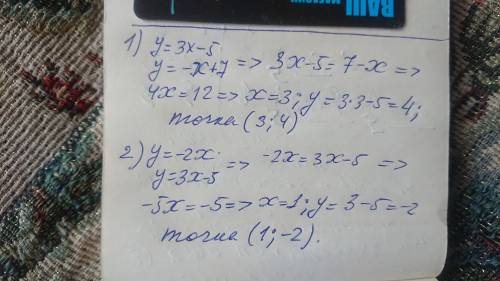 ВАШ МАГАЗИН
1) y=3x-5
y=-x+7 => 3x-5=7-x =>
4x=12 => x=3; y=3·3-5=4;
точка (3; 4)
2) y=-2x
y=3x-5 => -2x=3x-5 =>
-5x=-5 => x=1; y=3-5=-2
точка (1; -2).